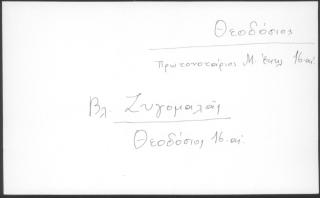 Θεοδόσιος
Πρωτονοτάριος Μ. 16 αι.
Βλ. Ζυγομαλάς
Θεοδόσιος 16 αι.